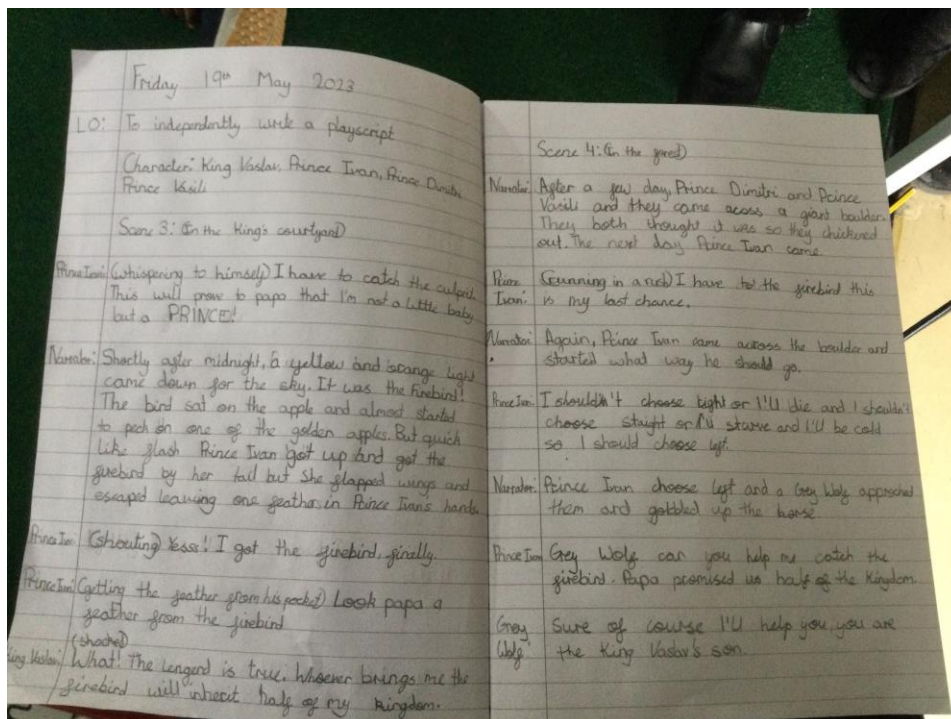 Friday 19th May 2023
LO: To independently write a playscript
Character: King Vaslav, Prince Ivan, Prince Dimitri,
Prince Vasili
Scene 3: (In the King's courtyard)
Prince Ivan: (whispering to himself) I have to catch the culprit.
This will prove to papa that I'm not a little baby
but a PRINCE!
Narrator: Shortly after midnight, a yellow and orange light
came down for the sky. It was the firebird!
The bird sat on the apple and almost started
to peck on one of the golden apples. But quick
like flash Prince Ivan got up and got the
firebird by her tail but she flapped wings and
escaped leaving one feather in Prince Ivan's hands.
Prince Ivan: (shouting) Yesss! I got the firebird, finally.
Prince Ivan: (getting the feather from his pocket) Look papa a
feather from the firebird
(shocked)
King Vaslav: What! The lengend is true. Whoever brings me the
firebird will inherit half of my kingdom.
Scene 4: (In the forest)
Narrator: After a few day, Prince Dimitri and Prince
Vasili and they came acoss a giant boulder.
They both thought it was so they chickened
out. The next day Prince Ivan came.
Prince Ivan: (Running in a rush) I have to the firebird this
is my last chance.
Narrator: Again, Prince Ivan came across the boulder and
started what way he should go.
Prince Ivan: I shouldn't choose right or I'll die and I shouldn't
choose staight or I'll starve and I'll be cold
so I should choose left.
Narrator: Prince Ivan choose left and a Grey Wolf approched
them and gobbled up the horse.
Prince Ivan: Grey Wolf can you help me catch the
firebird. Papa promised us half of the Kingdom.
Grey Wolf: Sure of course I'll help you, you are
the King Vaslav's son.